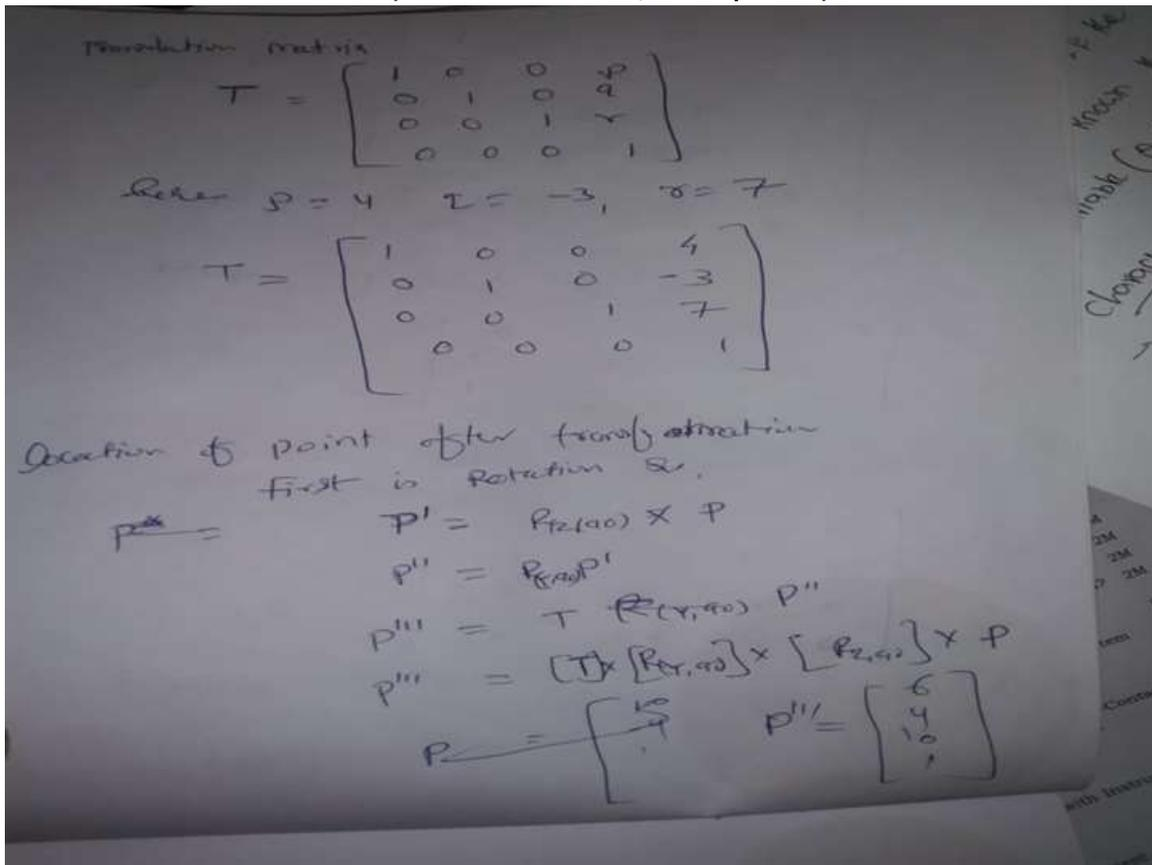 Translation matrix
T = [ 1 0 0 p
0 1 0 q
0 0 1 r
0 0 0 1 ]
here p = 4 q = -3, r = 7
T = [ 1 0 0 4
0 1 0 -3
0 0 1 7
0 0 0 1 ]
location of point after transformation
first is Rotation
P' = Rz(90) × P
P'' = P'
P''' = T R(Y,90) P''
P''' = [T]× [R(Y,90]× [Rz,90] × P
P = [ P''' = [ 6
4
10
1 ]
Known
Charac
2M
2M
2M
with Instru